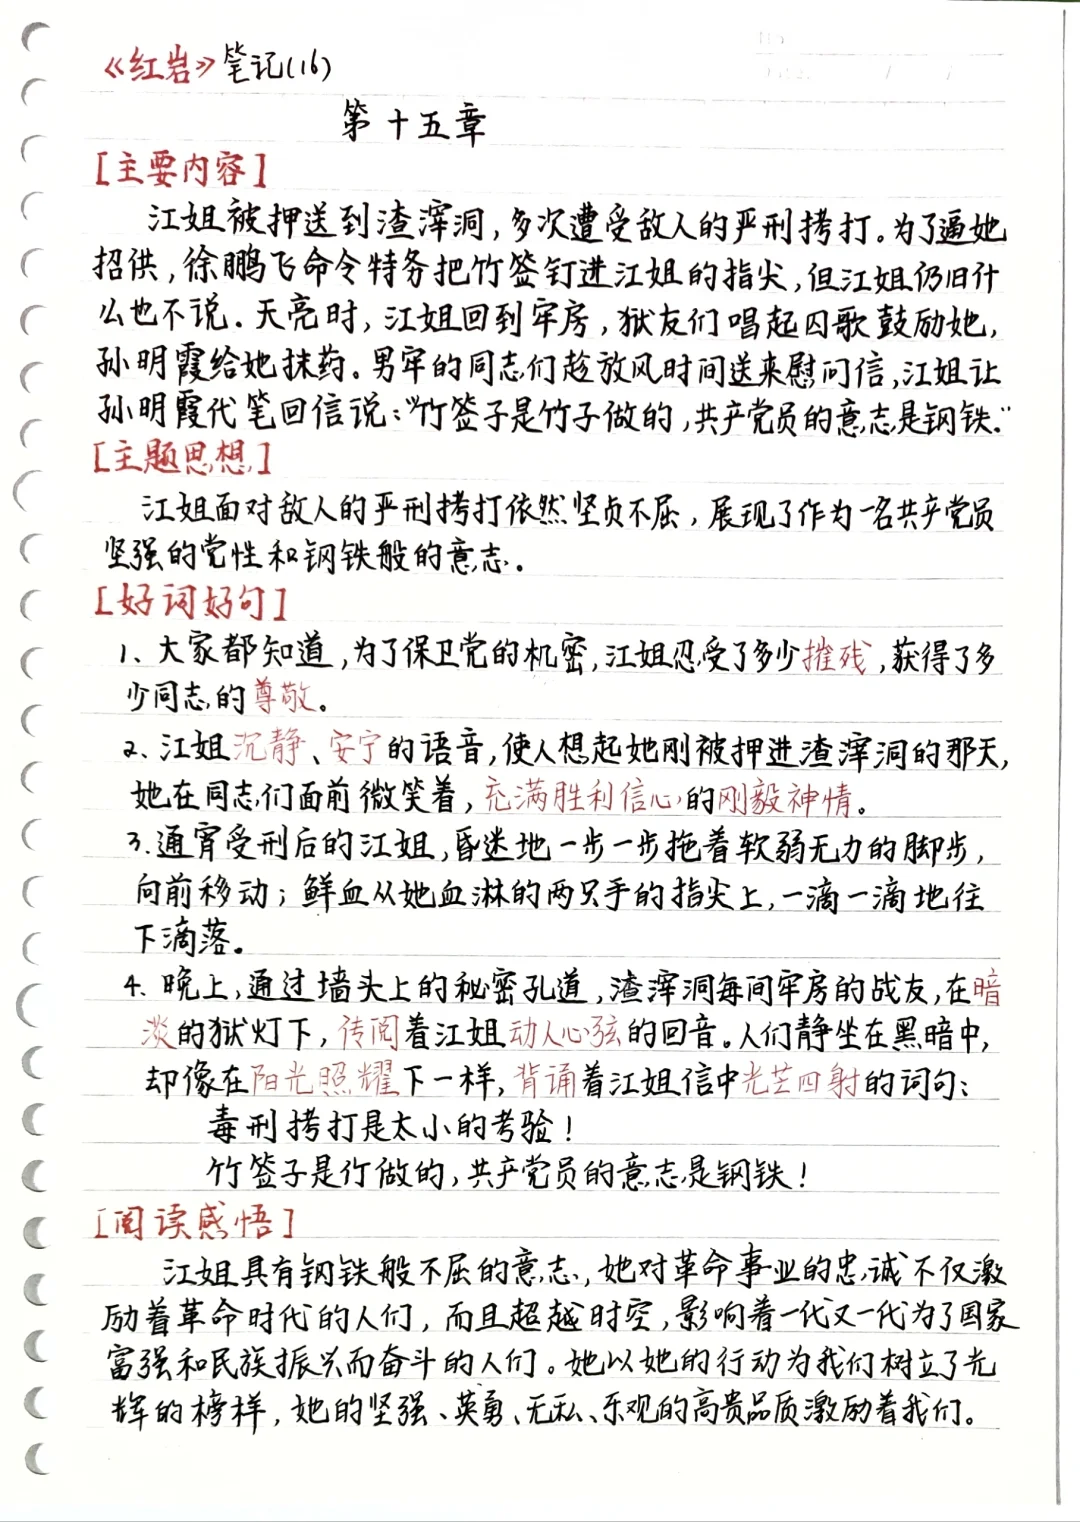 《红岩》笔记(16)
第十五章
[主要内容]
江姐被押送到渣滓洞,多次遭受敌人的严刑拷打。为了逼她
招供,徐鹏飞命令特务把竹签钉进江姐的指尖,但江姐仍旧什
么也不说。天亮时,江姐回到牢房,狱友们唱起囚歌鼓励她,
孙明霞给她抹药。男牢的同志们趁放风时间送来慰问信,江姐让
孙明霞代笔回信说:“竹签子是竹子做的,共产党员的意志是钢铁.”
[主题思想]
江姐面对敌人的严刑拷打依然坚贞不屈,展现了作为一名共产党员
坚强的党性和钢铁般的意志。
[好词好句]
1、大家都知道,为了保卫党的机密,江姐忍受了多少摧残,获得了多
少同志的尊敬。
2、江姐沉静、安宁的语音,使人想起她刚被押进渣滓洞的那天,
她在同志们面前微笑着,充满胜利信心的刚毅神情。
3.通宵受刑后的江姐,昏迷地一步一步拖着软弱无力的脚步,
向前移动;鲜血从她血淋的两只手的指尖上,一滴一滴地往
下滴落。
4、晚上,通过墙头上的秘密孔道,渣滓洞每间牢房的战友,在暗
淡的狱灯下,传阅着江姐动人心弦的回音。人们静坐在黑暗中,
却像在阳光照耀下一样,背诵着江姐信中光芒四射的词句:
毒刑拷打是太小的考验!
竹签子是竹做的,共产党员的意志是钢铁!
[阅读感悟]
江姐具有钢铁般不屈的意志,她对革命事业的忠诚不仅激
励着革命时代的人们,而且超越时空,影响着一代又一代为了国家
富强和民族振兴而奋斗的人们。她以她的行动为我们树立了光
辉的榜样,她的坚强、英勇、无私、乐观的高贵品质激励着我们。